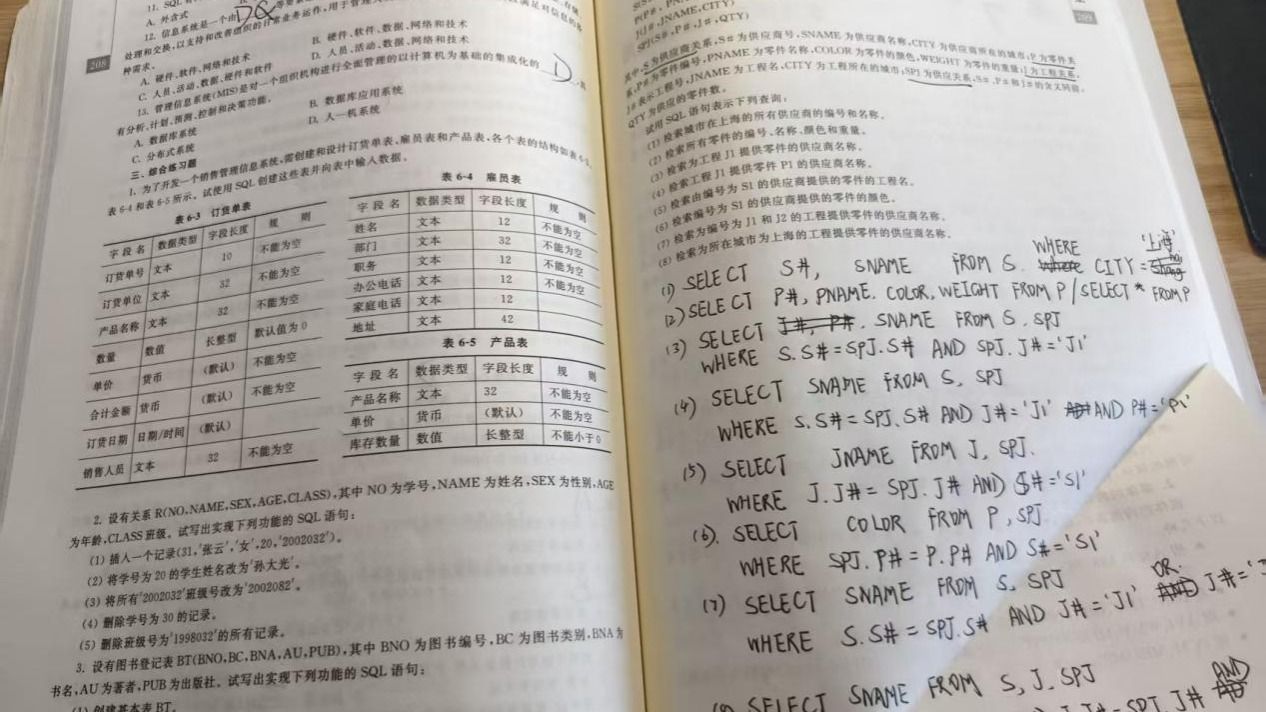 11. SQL
A. 外含式
12. 信息系统是一个由 DC 等要素
处理和交换,以支持和改善组织的日常业务运作,
种需求。
A. 硬件、软件、网络和技术
B. 硬件、软件、数据、网络和技术
C. 人员、活动、数据、硬件和软件
D. 人员、活动、数据、网络和技术
13. 管理信息系统(MIS)是对一个组织机构进行全面管理的以计算机为基础的集成化的 D
有分析、计划、预测、控制和决策功能。
A. 数据库系统
B. 数据库应用系统
C. 分布式系统
D. 人—机系统
208
三、综合练习题
1. 为了开发一个销售管理信息系统,需创建和设计订货单表、雇员表和产品表,各个表的结构如表 6-3、
表 6-4 和表 6-5 所示。试使用 SQL 创建这些表并向表中输入数据。
表 6-3 订货单表
字段名 数据类型 字段长度 规则
订货单号 文本 10 不能为空
订货单位 文本 32 不能为空
产品名称 文本 32 不能为空
数量 数值 长整型 默认值为 0
单价 货币 (默认) 不能为空
合计金额 货币 (默认) 不能为空
订货日期 日期/时间 (默认)
销售人员 文本 32 不能为空
表 6-4 雇员表
字段名 数据类型 字段长度 规则
姓名 文本 12 不能为空
部门 文本 32 不能为空
职务 文本 12 不能为空
办公电话 文本 12 不能为空
家庭电话 文本 12
地址 文本 42
表 6-5 产品表
字段名 数据类型 字段长度 规则
产品名称 文本 32 不能为空
单价 货币 (默认) 不能为空
库存数量 数值 长整型 不能小于 0
2. 设有关系 R(NO,NAME,SEX,AGE,CLASS),其中 NO 为学号,NAME 为姓名,SEX 为性别,AGE
为年龄,CLASS 班级。试写出实现下列功能的 SQL 语句:
(1) 插入一个记录(31,'张云','女',20,'2002032')。
(2) 将学号为 20 的学生姓名改为'孙大光'。
(3) 将所有'2002032'班级号改为'2002082'。
(4) 删除学号为 30 的记录。
(5) 删除班级号为'1998032'的所有记录。
3. 设有图书登记表 BT(BNO,BC,BNA,AU,PUB),其中 BNO 为图书编号,BC 为图书类别,BNA 为
书名,AU 为著者,PUB 为出版社。试写出实现下列功能的 SQL 语句:
(1) 创建基本表 BT。
J(J#,JNAME,CITY)
SPJ(S#,P#,J#,QTY)
209
其中,S 为供应商关系,S#为供应商号,SNAME 为供应商名称,CITY 为供应商所在的城市;P 为零件关
系,P#为零件编号,PNAME 为零件名称,COLOR 为零件的颜色,WEIGHT 为零件的重量;J 为工程关系,
J#表示工程号,JNAME 为工程名,CITY 为工程所在的城市;SPJ 为供应关系,S#、P#和 J#的含义同前,
QTY 为供应的零件数。
试用 SQL 语句表示下列查询:
(1) 检索城市在上海的所有供应商的编号和名称。
(2) 检索所有零件的编号、名称、颜色和重量。
(3) 检索为工程 J1 提供零件的供应商名称。
(4) 检索工程 J1 提供零件 P1 的供应商名称。
(5) 检索由编号为 S1 的供应商提供的零件的工程名。
(6) 检索编号为 S1 的供应商提供的零件的颜色。
(7) 检索为编号为 J1 和 J2 的工程提供零件的供应商名称。
(8) 检索为所在城市为上海的工程提供零件的供应商名称。
(1) SELECT S#, SNAME FROM S. WHERE CITY = '上海'
(2) SELECT P#, PNAME. COLOR, WEIGHT FROM P / SELECT * FROM P
(3) SELECT J#, P#. SNAME FROM S. SPJ
WHERE S.S# = SPJ.S# AND SPJ.J# = 'J1'
(4) SELECT SNAME FROM S, SPJ
WHERE S.S# = SPJ.S# AND J# = 'J1' AND P# = 'P1'
(5) SELECT JNAME FROM J, SPJ.
WHERE J.J# = SPJ.J# AND S# = 'S1'
(6). SELECT COLOR FROM P, SPJ
WHERE SPJ.P# = P.P# AND S# = 'S1'
(7) SELECT SNAME FROM S, SPJ
WHERE S.S# = SPJ.S# AND J# = 'J1' OR. J# = '
SELECT SNAME FROM S, J. SPJ
SPJ. J# AND